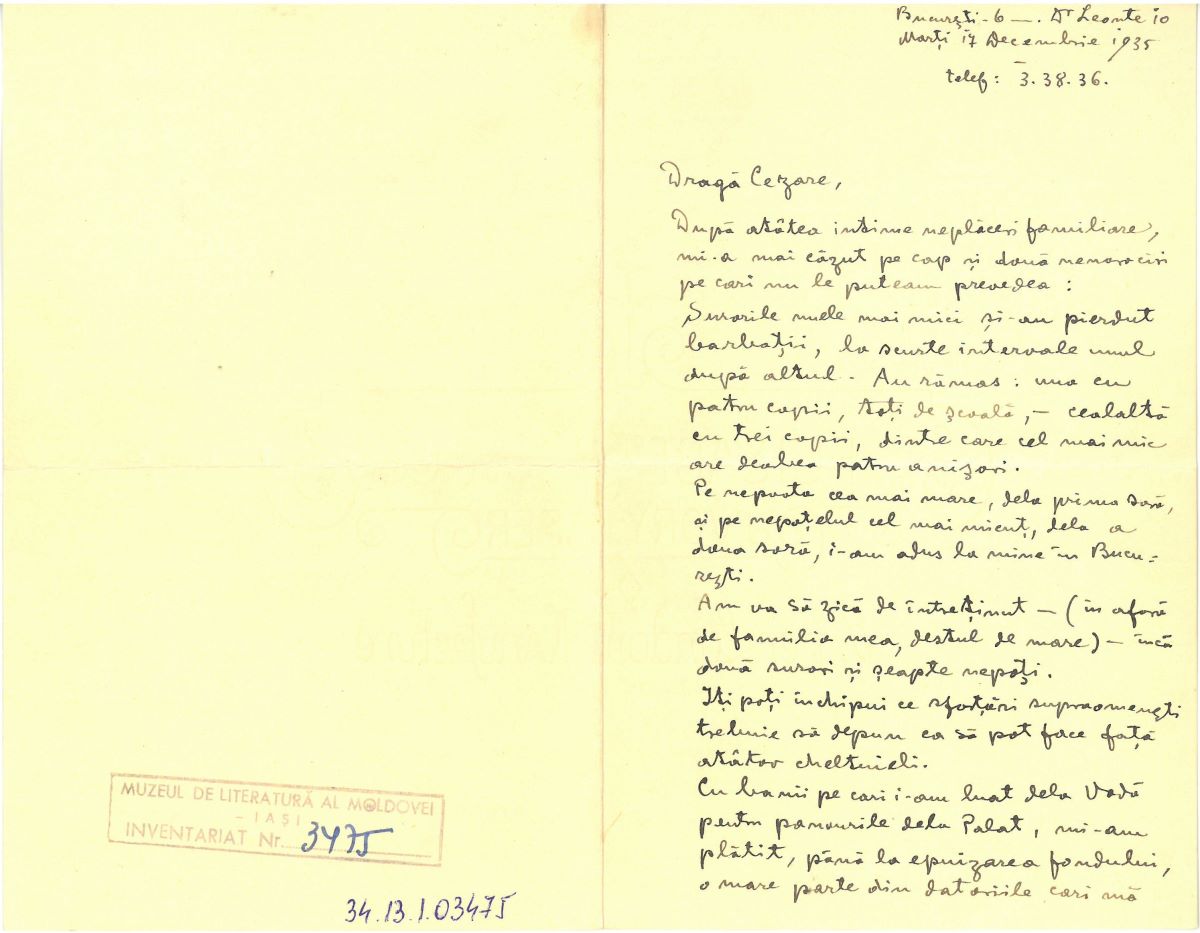 București-6 —. Dr Leonte 10
Marți 17 Decembrie 1935
telef: 3.38.36.
Dragă Cezare,
După atâtea intime neplăceri familiare,
mi-a mai căzut pe cap și două nenorociri
pe cari nu le puteam prevedea :
Surorile mele mai mici și-au pierdut
barbații, la scurte intervale unul
după altul. Au rămas : una cu
patru copii, toți de școală, – cealaltă
cu trei copii, dintre care cel mai mic
are deabea patru anișori.
Pe nepoata cea mai mare, dela prima soră,
și pe nepoțelul cel mai micuț, dela a
doua soră, i-am adus la mine în Bucu-
rești.
Am va să zică de întreținut – (în afară
de familia mea, destul de mare) – încă
două surori și șeapte nepoți.
Iți poți închipui ce sforțări supraomenești
trebuie să depun ca să pot face față
atâtor cheltuieli.
Cu banii pe cari i-am luat dela Vadă
pentru panourile dela Palat, mi-am
plătit, până la epuizarea fondului,
o mare parte din datoriile cari mă
MUZEUL DE LITERATURĂ AL MOLDOVEI
- IAȘI -
INVENTARIAT Nr. 3475
34.13.1.03475